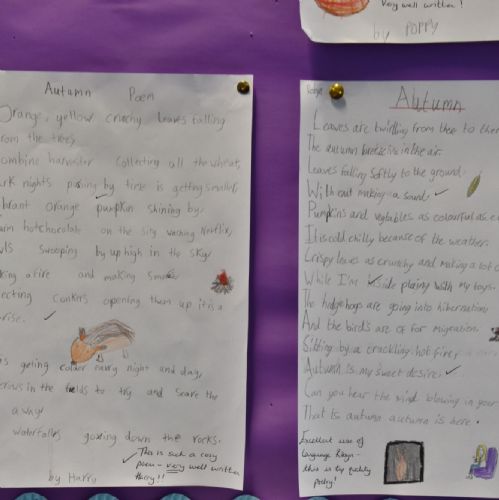 Very well written!
by POPPY
Autumn Poem
Orange, yellow crunchy leaves falling
from the trees
combine harvester collecting all the wheat,
ark nights passing by time is getting smaller,
ibrant orange pumpkin shining by,
hotchocolate on the watching Netflix,
wls swooping by up high in the sky
king a fire and making
ecting conkers opening them up it is a
rise.
getting colder every night and day,
crows in the fields to try and scare the
away
waterfalles going down the rocks.
by Harry
This is such a cosy
poem - very well written
Harry!!
Autumn
Leaves are twirling from tree to tree
The autumn breeze is in the air.
Leaves falling softly to the ground.
With out making a sound.
Pumpkins and vegtables as colourful as
It is cold chilly because of the weather.
Crispy leaves as crunchy and making a lot
While I'm inside playing with my toys.
The hedgehogs are going into hibernation
And the birds are of for migration.
Sitting by a crackling hot fire,
Autumn is my sweet desire.
Can you hear the wind blowing in your
That is autumn autumn is here.
Excellent use of
language
this is top quality
poetry!